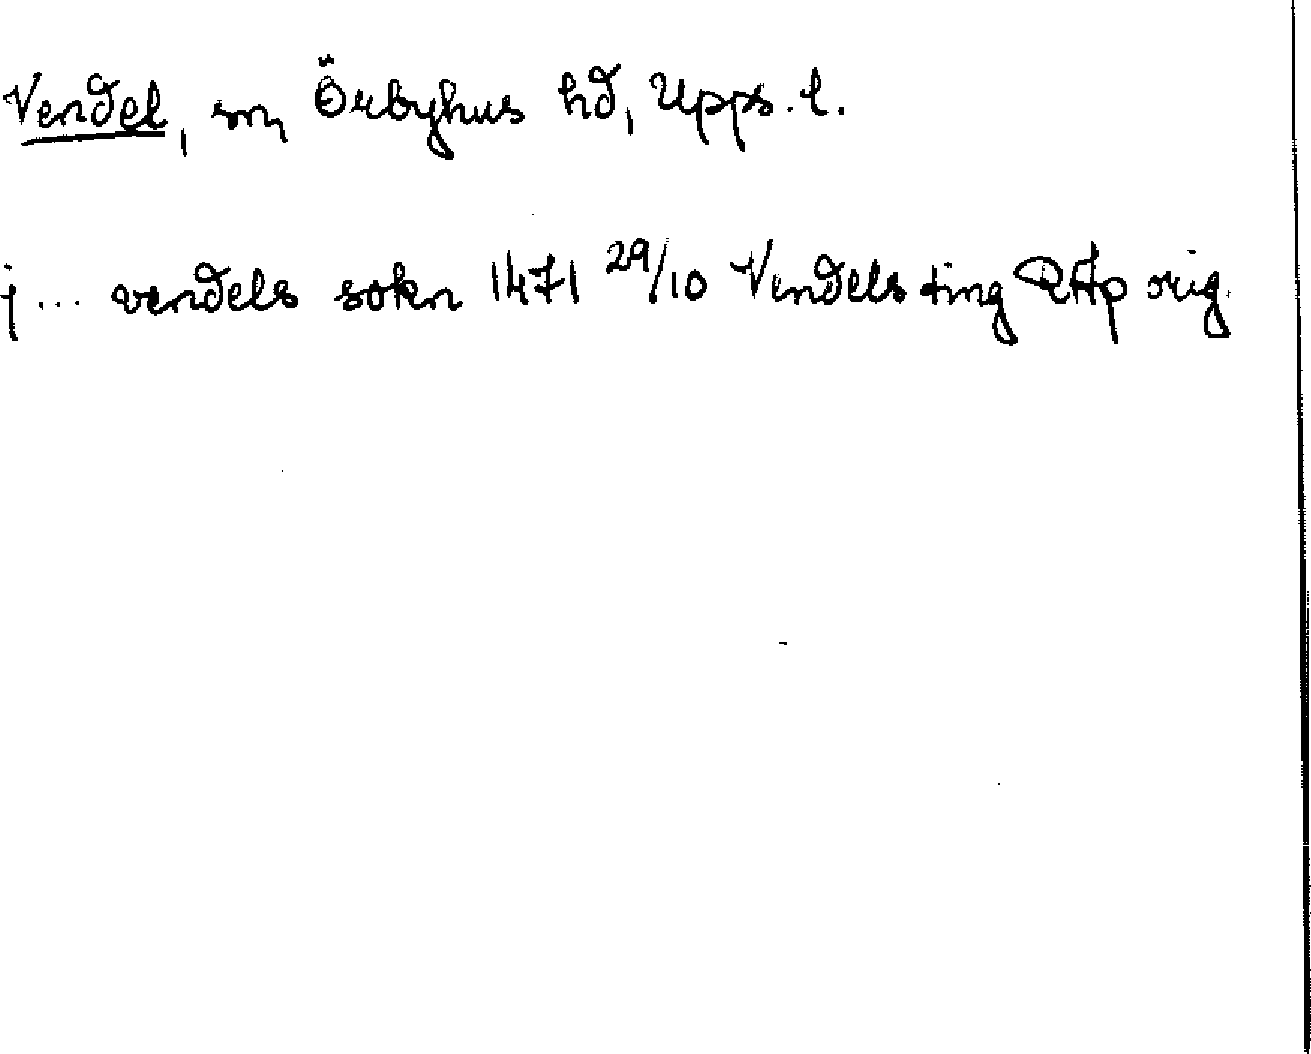 Vendel, sn, Örbyhus hd, Upps. l.
j... vendels sokn 1471 29/10 Vendels ting RAp orig.